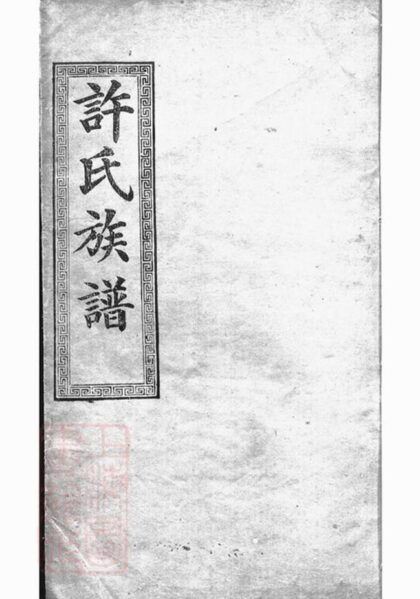 許氏族譜